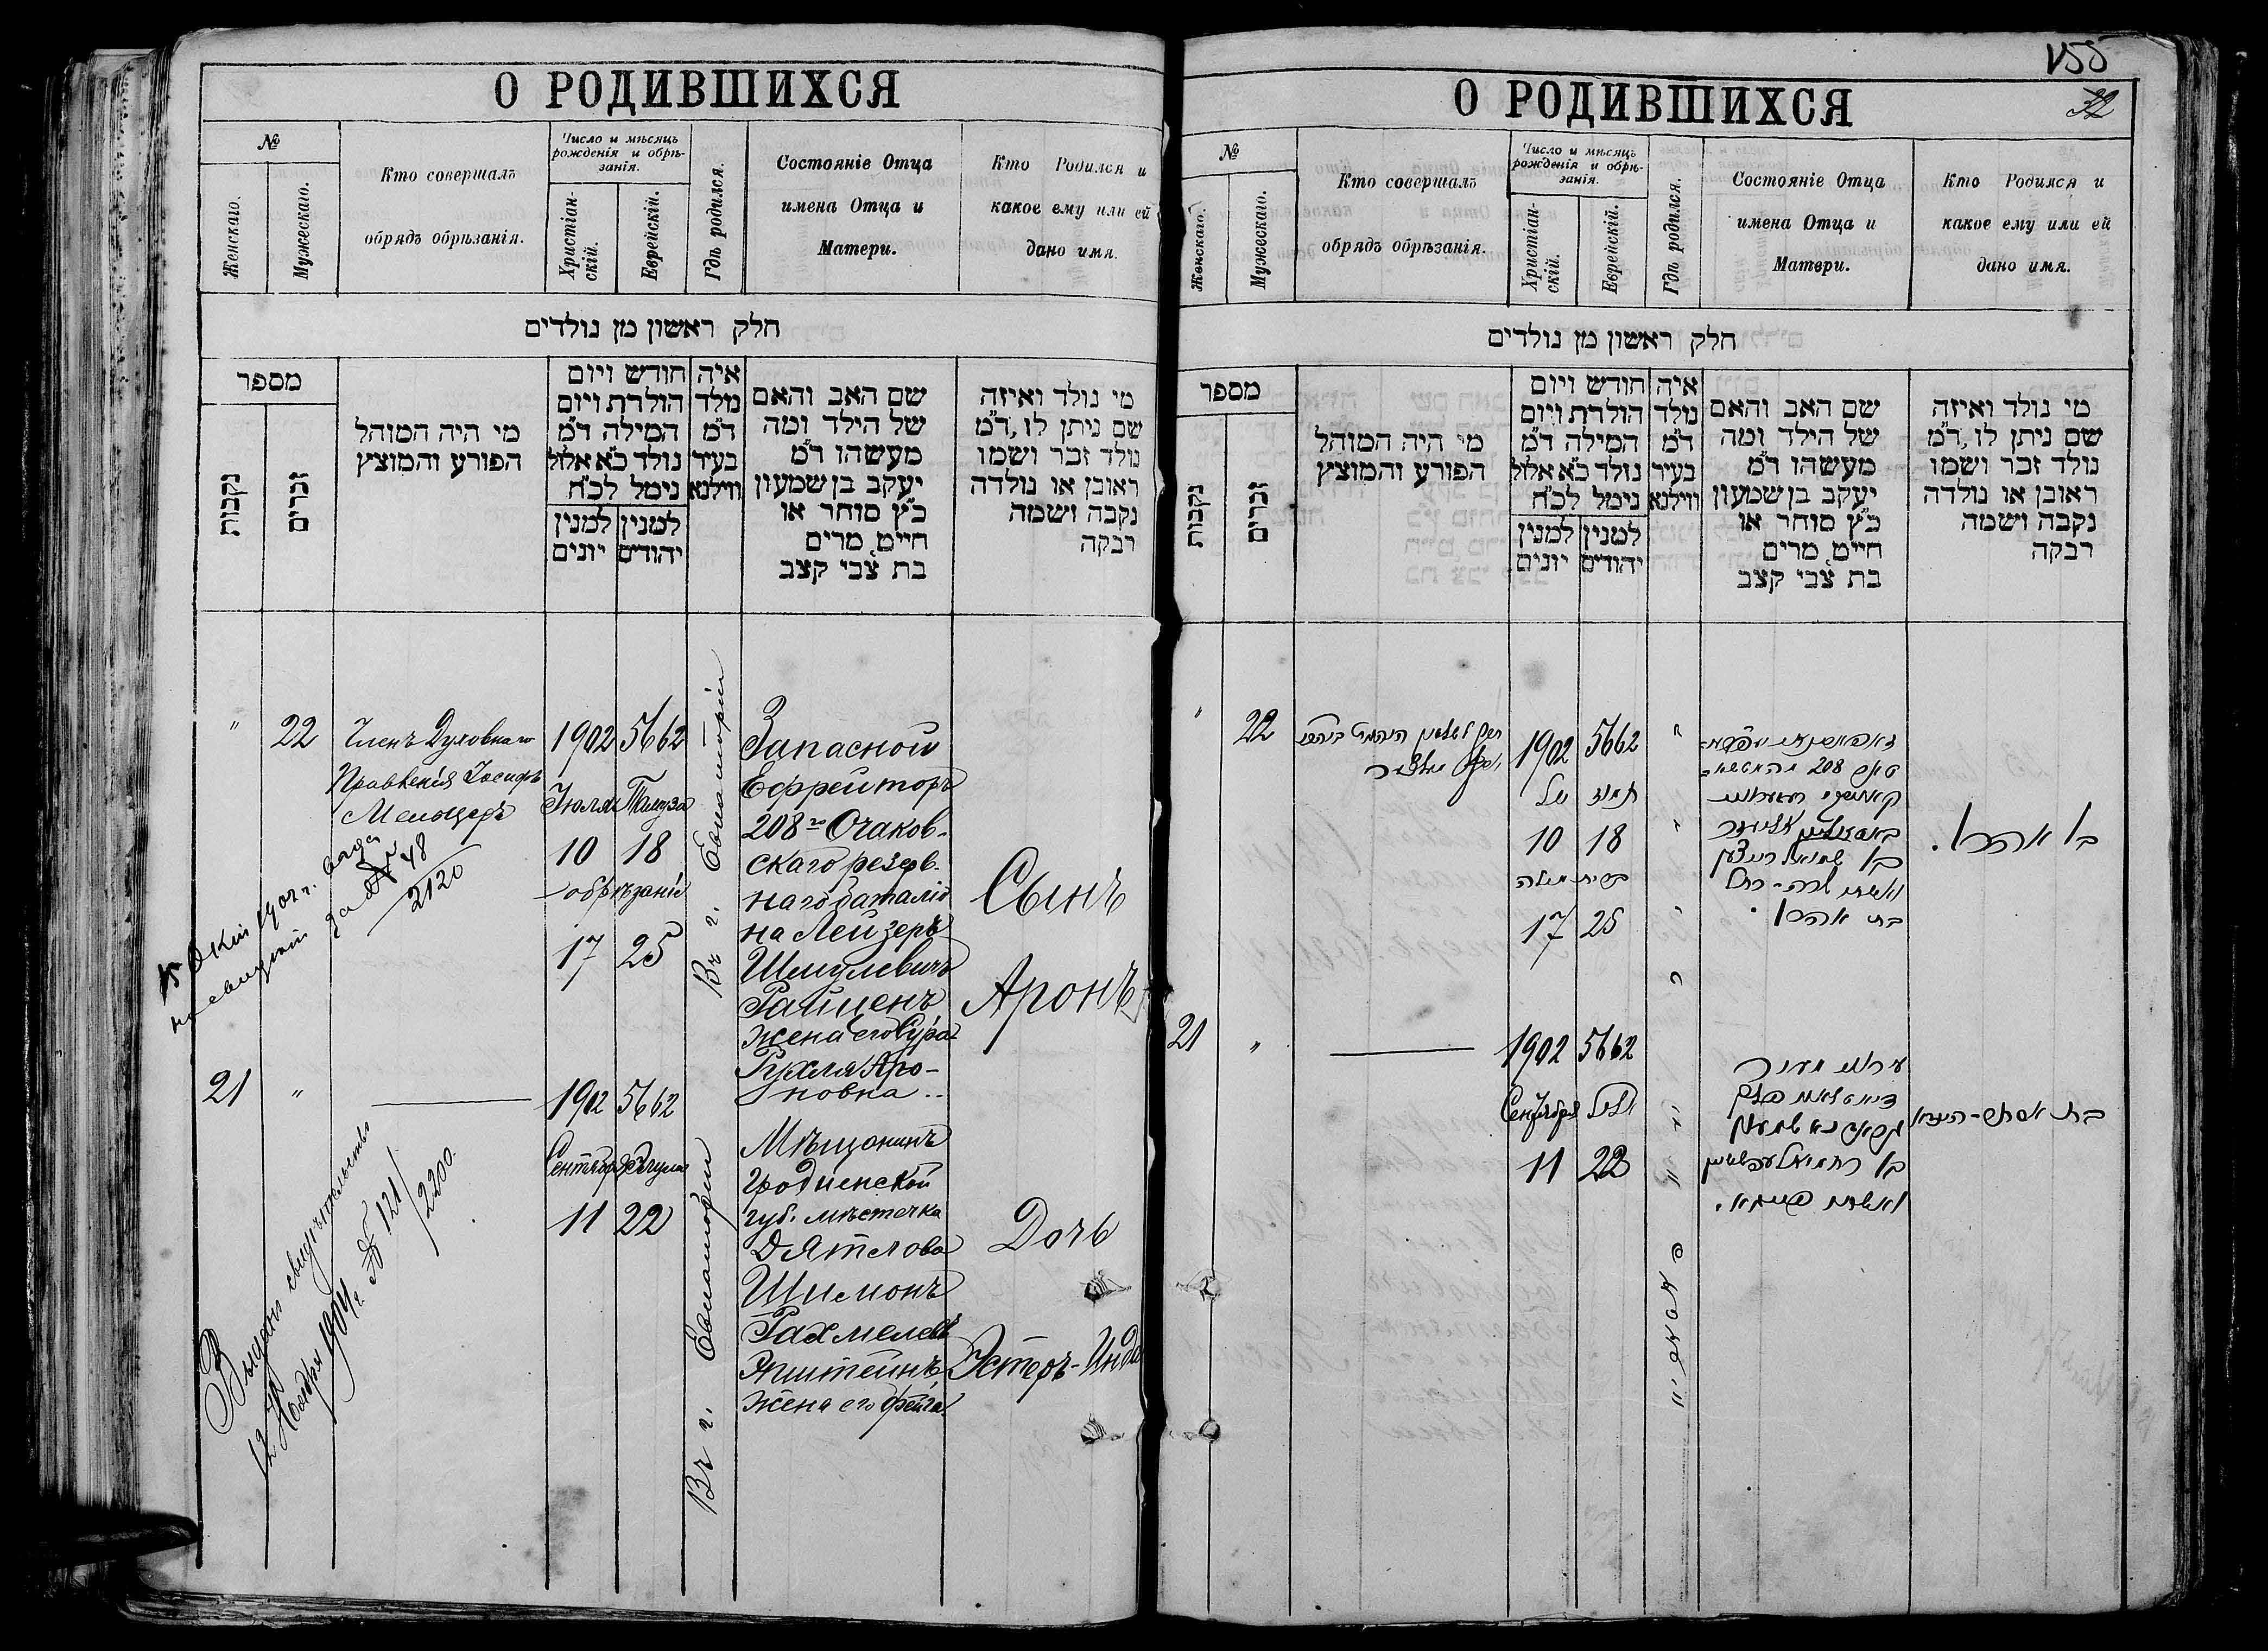 О РОДИВШИХСЯ
№
Женскаго.
Мужескаго.
Кто совершалъ
обрядъ обрѣзанія.
Число и мѣсяцъ
рожденія и обрѣ-
занія.
Христіан-
скій.
Еврейскій.
Гдѣ родился.
Состояніе Отца
имена Отца и
Матери.
Кто Родился и
какое ему или ей
дано имя.
חלק ראשון מן נולדים
מספר
נקבות
זכרים
מי היה המוהל
הפורע והמוצץ
חודש ויום
הולדת ויום
המילה ד"מ
נולד כ"א אלול
נימל לכ"ח
למנין יונים
למנין יהודים
איה
נולד
ד"מ
בעיר
ווילנא
שם האב והאם
של הילד ומה
מעשהו ד"מ
יעקב בן שמעון
כ"ץ סוחר או
חייט, מרים
בת צבי קצב
מי נולד ואיזה
שם ניתן לו, ד"מ
נולד זכר ושמו
ראובן או נולדה
נקבה ושמה
רבקה
" 22
Членъ Духовнаго
Правленія Іосифъ
1902 5662
Іюля Тамуза
10 18
обрѣзаніе
17 25
Въ г. Евпаторіи
Запасной
Ефрейторъ
208го Очаков-
скаго резерв-
наго баталіо
на Лейзеръ
Шмулевичъ
Райценъ
жена его Сура-
Рухля Аро-
новна..
Сынъ
Аронъ
1902 г.
за № 48
2120
21 "
1902 5662
Сентября Элула
11 22
Въ г. Евпаторіи
Мѣщанинъ
Гродненской
губ. мѣстечка
Дятлова
Шимонъ
Рахмелев
Эпштейнъ
жена его Фейга.
Дочь
Эстеръ-Инда
Выдано свидѣтельство
12 Ноября 1904 г. № 121/2200.
155
32
О РОДИВШИХСЯ
№
Женскаго.
Мужескаго.
Кто совершалъ
обрядъ обрѣзанія.
Число и мѣсяцъ
рожденія и обрѣ-
занія.
Христіан-
скій.
Еврейскій.
Гдѣ родился.
Состояніе Отца
имена Отца и
Матери.
Кто Родился и
какое ему или ей
дано имя.
חלק ראשון מן נולדים
מספר
נקבות
זכרים
מי היה המוהל
הפורע והמוצץ
חודש ויום
הולדת ויום
המילה ד"מ
נולד כ"א אלול
נימל לכ"ח
למנין יונים
למנין יהודים
איה
נולד
ד"מ
בעיר
ווילנא
שם האב והאם
של הילד ומה
מעשהו ד"מ
יעקב בן שמעון
כ"ץ סוחר או
חייט, מרים
בת צבי קצב
מי נולד ואיזה
שם ניתן לו, ד"מ
נולד זכר ושמו
ראובן או נולדה
נקבה ושמה
רבקה
" 22
1902 5662
יול תמוז
10 18
ברית מילה
17 25
208
אליעזר
בן שמואל
ואשתו שרה-רחל
בת אהרן.
בן אהרן.
21 "
1902 5662
Сентября אלול
11 22
שמעון
בן ירחמיאל עפשטיין
ואשתו פייגא.
בת אסתר-הינדא